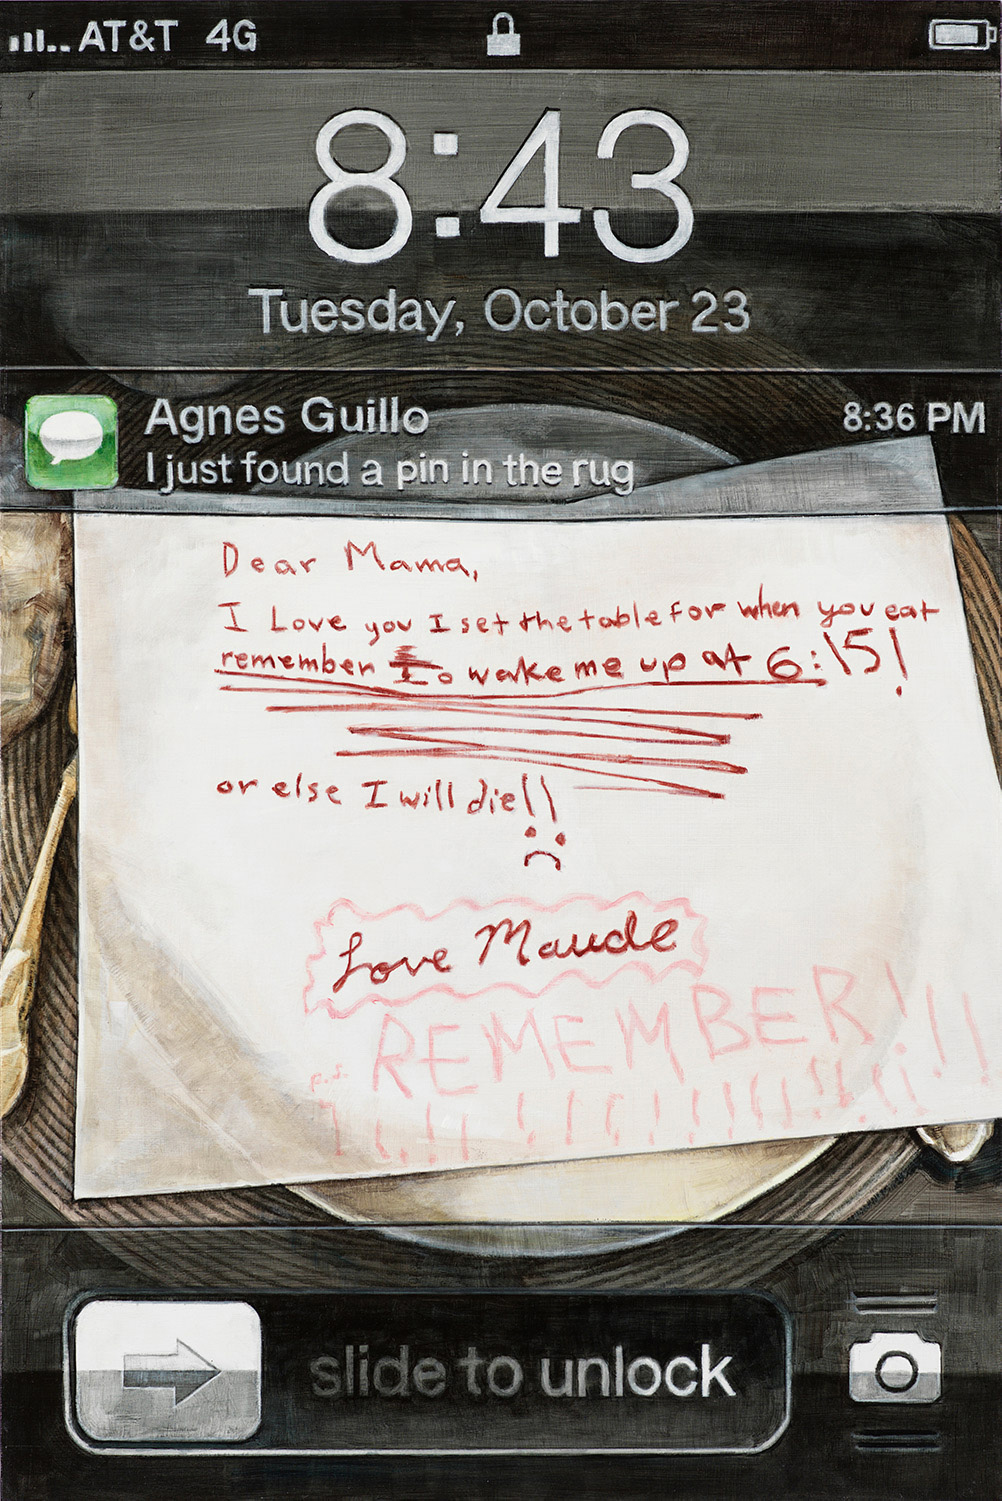 AT&T 4G
8:43
Tuesday, October 23
Agnes Guillo
8:36 PM
I just found a pin in the rug
Dear Mama,
I Love you I set the table for when you eat
remember to wake me up at 6:15!
or else I will die!!
Love Maude
p.s. REMEMBER!!!
!!!!!!!!!!!!!!!!!!
slide to unlock